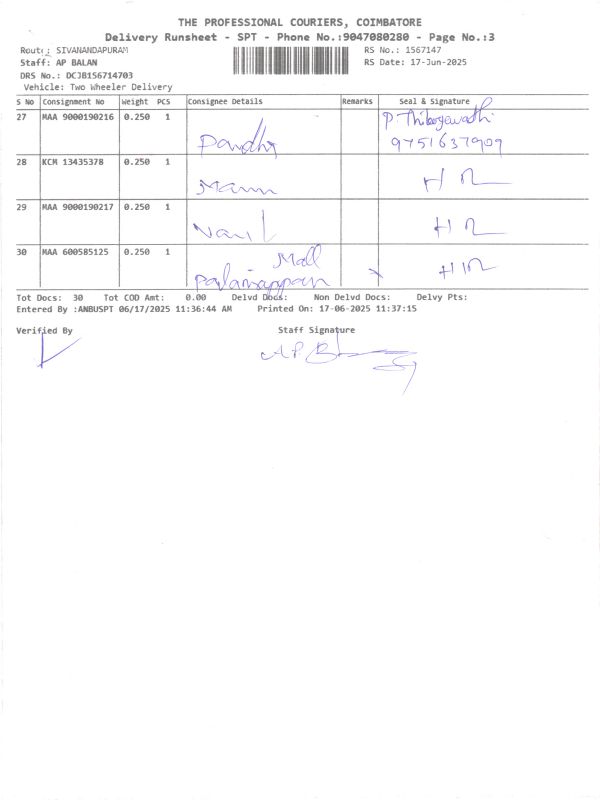 THE PROFESSIONAL COURIERS, COIMBATORE
Delivery Runsheet - SPT - Phone No.:9047080280 - Page No.:3
Route: SIVANANDAPURAM RS No.: 1567147
Staff: AP BALAN RS Date: 17-Jun-2025
DRS No.: DCJB156714703
Vehicle: Two Wheeler Delivery
S No Consignment No Weight PCS Consignee Details Remarks Seal & Signature
27 MAA 9000190216 0.250 1 P
9751637909
28 KCM 13435378 0.250 1
29 MAA 9000190217 0.250 1
30 MAA 600585125 0.250 1 Mall
Palaniappan
Tot Docs: 30 Tot COD Amt: 0.00 Delvd Docs: Non Delvd Docs: Delvy Pts:
Entered By :ANBUSPT 06/17/2025 11:36:44 AM Printed On: 17-06-2025 11:37:15
Verified By Staff Signature